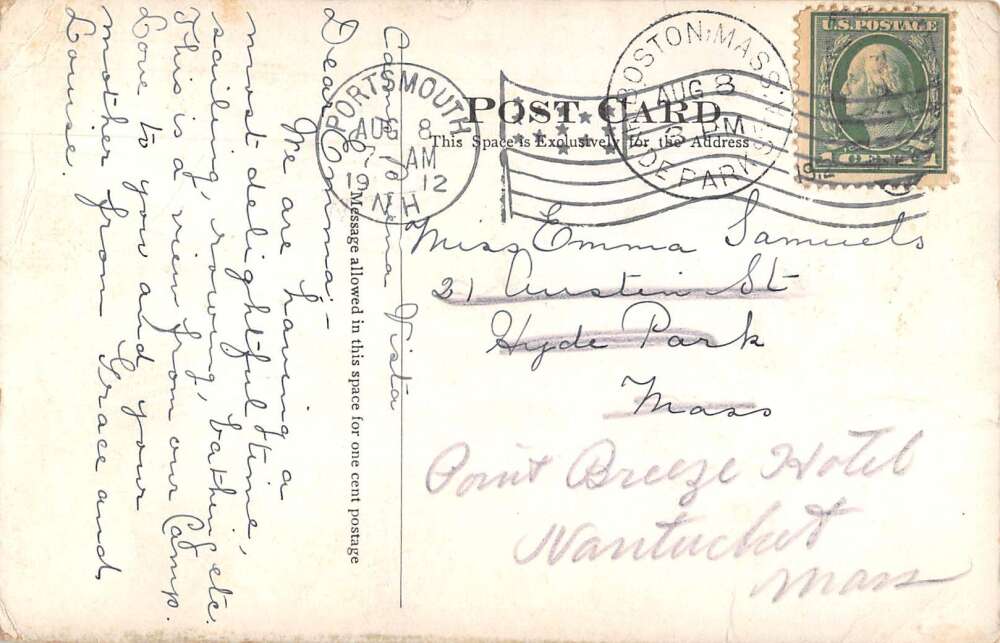 POST CARD
This Space is Exclusively for the Address
Message allowed in this space for one cent postage
U.S. POSTAGE
1 CENT 1
PORTSMOUTH
AUG 8
AM
1912
N.H.
BOSTON, MASS.
AUG 8
3 PM
HYDE PARK STA.
1912
Camp Buena Vista
Dear Emma:-
We are having a
most delightful time,
sailing, rowing, bathing etc.
This is a view from our Camp.
Love to you and your
mother from Grace and
Louise.
Miss Emma Samuels
21 Austin St
Hyde Park
Mass
Point Breeze Hotel
Nantucket
Mass